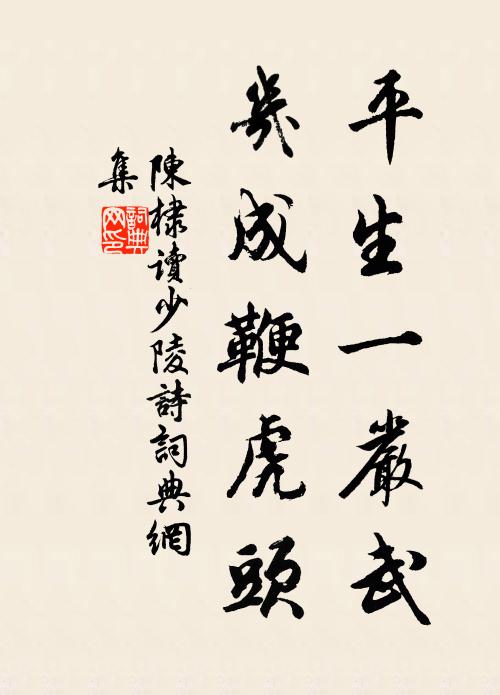 平生一嚴武
幾成鞭虎頭
陳棣讀少陵詩詞典網
集
詞典
网印